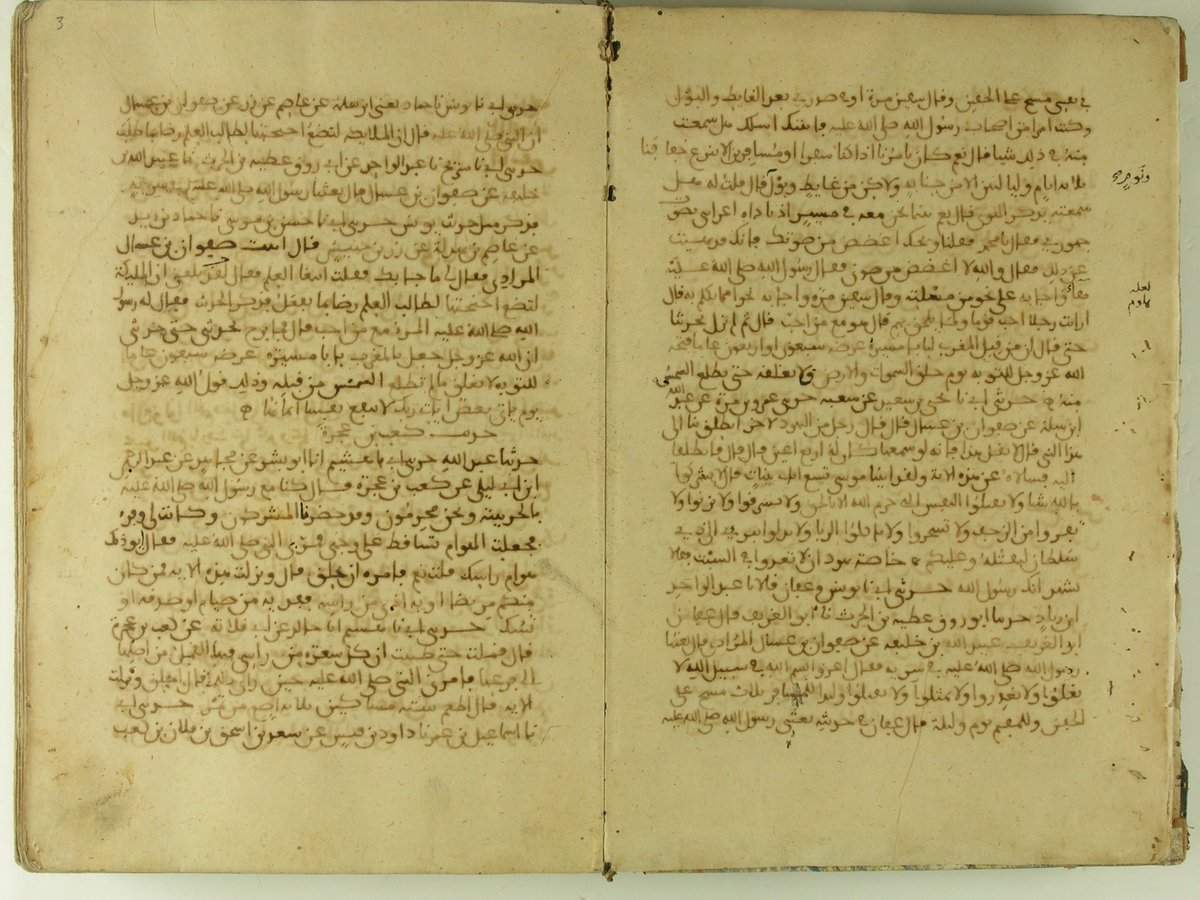 في نفسي مسح على الخفين وقال سفين مرة او في صدري بعد الغايط والبول
وكنت امرا من اصحاب رسول الله صلى الله عليه فاتيتك اسلك هل سمعت
منه في ذلك شيا قال نعم كان يامرنا اذا كنا سفرا او مسافرين الا ننزع خفافنا
ثلاثة ايام ولياليهن الا من جنابة ولاكن من غايط وبول قال قلت له هل
سمعته يذكر الهوى قال نعم بينا نحن معه في مسير اذ ناداه اعرابي بصوت
جهوري فقال يا محمد فقلنا ويحك اغضض من صوتك فانك قد نهيت
عن ذلك فقال والله لا اغضض من صوتي فقال رسول الله صلى الله عليه
هاؤ واجابه على نحو من مسلته وقال سفين مرة واجابه نحوا مما تكلم به قال
ارايت رجلا احب قوما ولما يلحق بهم قال هو مع من احب قال ثم لم يزل يحدثنا
حتى قال ان من قبل المغرب لبابا مسيرة عرضه سبعون او اربعون عاما فتحه
الله عز وجل للتوبة يوم خلق السموات والارض ولا يغلقه حتى تطلع الشمس
منه حدثني ابي نا يحيى بن سعيد عن شعبة حدثني عمرو بن مرة عن عبد الله
ابن سلمة عن صفوان بن عسال قال قال رجل من اليهود لاخر انطلق بنا الى
هذا النبي قال لا تقل هذا فانه لو سمعها كان له اربع اعين قال فانطلقا
اليه فسالاه عن هذه الاية ولقد اتينا موسى تسع ايات بينات قال لا تشركوا
بالله شيا ولا تقتلوا النفس التي حرم الله الا بالحق ولا تسرقوا ولا تزنوا ولا
تفروا من الزحف ولا تسحروا ولا تاكلوا الربا ولا تدلوا ببري الى ذي
سلطان ليقتله وعليكم خاصة يهود ان لا تعدوا في السبت فقالا
نشهد انك رسول الله حدثني ابي نا يونس وعفان قالا نا عبد الواحد
ابن زياد حدثنا ابو روق عطية بن الحرث نا ابو الغريف قال عفان
ابو الغريف عبيد الله بن خليفة عن صفوان بن عسال المرادي قال بعثنا
رسول الله صلى الله عليه في سرية فقال اغزوا بسم الله في سبيل الله لا
تغلوا ولا تغدروا ولا تمثلوا ولا تقتلوا وليدا للمسافر ثلاث مسح على
الخفين وللمقيم يوم وليلة قال عفان في حديثه بعثني رسول الله صلى الله عليه
لعله
هاوم
حدثني ابي نا يونس نا حماد يعني ابن سلمة عن عاصم عن زر عن صفوان بن عسال
ان النبي صلى الله عليه قال ان الملايكة لتضع اجنحتها لطالب العلم رضا بما طلب
حدثني ابي نا سريج نا عبد الواحد عن ابي روق عطية بن الحرث نا عبيد الله بن
خليفة عن صفوان بن عسال قال بعثنا رسول الله صلى الله عليه في سرية
فذكر مثل حديث يونس حدثني ابي نا حسن بن موسى نا حماد بن زيد
عن عاصم بن بهدلة عن زر بن حبيش قال اتيت صفوان بن عسال
المرادي فقال لي ما جا بك فقلت ابتغا العلم فقال لقد بلغني ان المليكة
لتضع اجنحتها لطالب العلم رضا بما يفعل فذكر الحديث فقال له رسول
الله صلى الله عليه المرء مع من احب قال فما برح يحدثني حتى حدثني
ان الله عز وجل جعل بالمغرب بابا مسيرة عرضه سبعون عاما
للتوبة لا يغلق ما لم تطلع الشمس من قبله وذلك قول الله عز وجل
يوم ياتي بعض ايات ربك لا ينفع نفسا ايمانها
حديث كعب بن عجرة
حدثنا عبد الله حدثني ابي نا هشيم انا ابو بشر عن مجاهد عن عبد الرحمن
ابن ابي ليلى عن كعب بن عجرة قال كنا مع رسول الله صلى الله عليه
بالحديبية ونحن محرمون وقد حصرنا المشركون وكانت لي وفرة
فجعلت الهوام تساقط على وجهي فمر بي النبي صلى الله عليه فقال ايوذيك
هوام راسك قلت نعم فامره ان يحلق قال ونزلت هذه الاية فمن كان
منكم مريضا او به اذى من راسه ففدية من صيام او صدقة او
نسك حدثني ابي نا هشيم انا خالد عن ابي قلابة عن كعب بن عجرة
قال قملت حتى ظننت ان كل شعرة من راسي فيها القمل من اصلها
الى فرعها فامرني النبي صلى الله عليه حين راى ذلك قال احلق ونزلت
الاية قال اطعم ستة مساكين ثلاثة اصع من تمر حدثني ابي
نا اسماعيل بن عمر نا داود بن قيس عن سعد بن اسحق بن فلان بن كعب
3